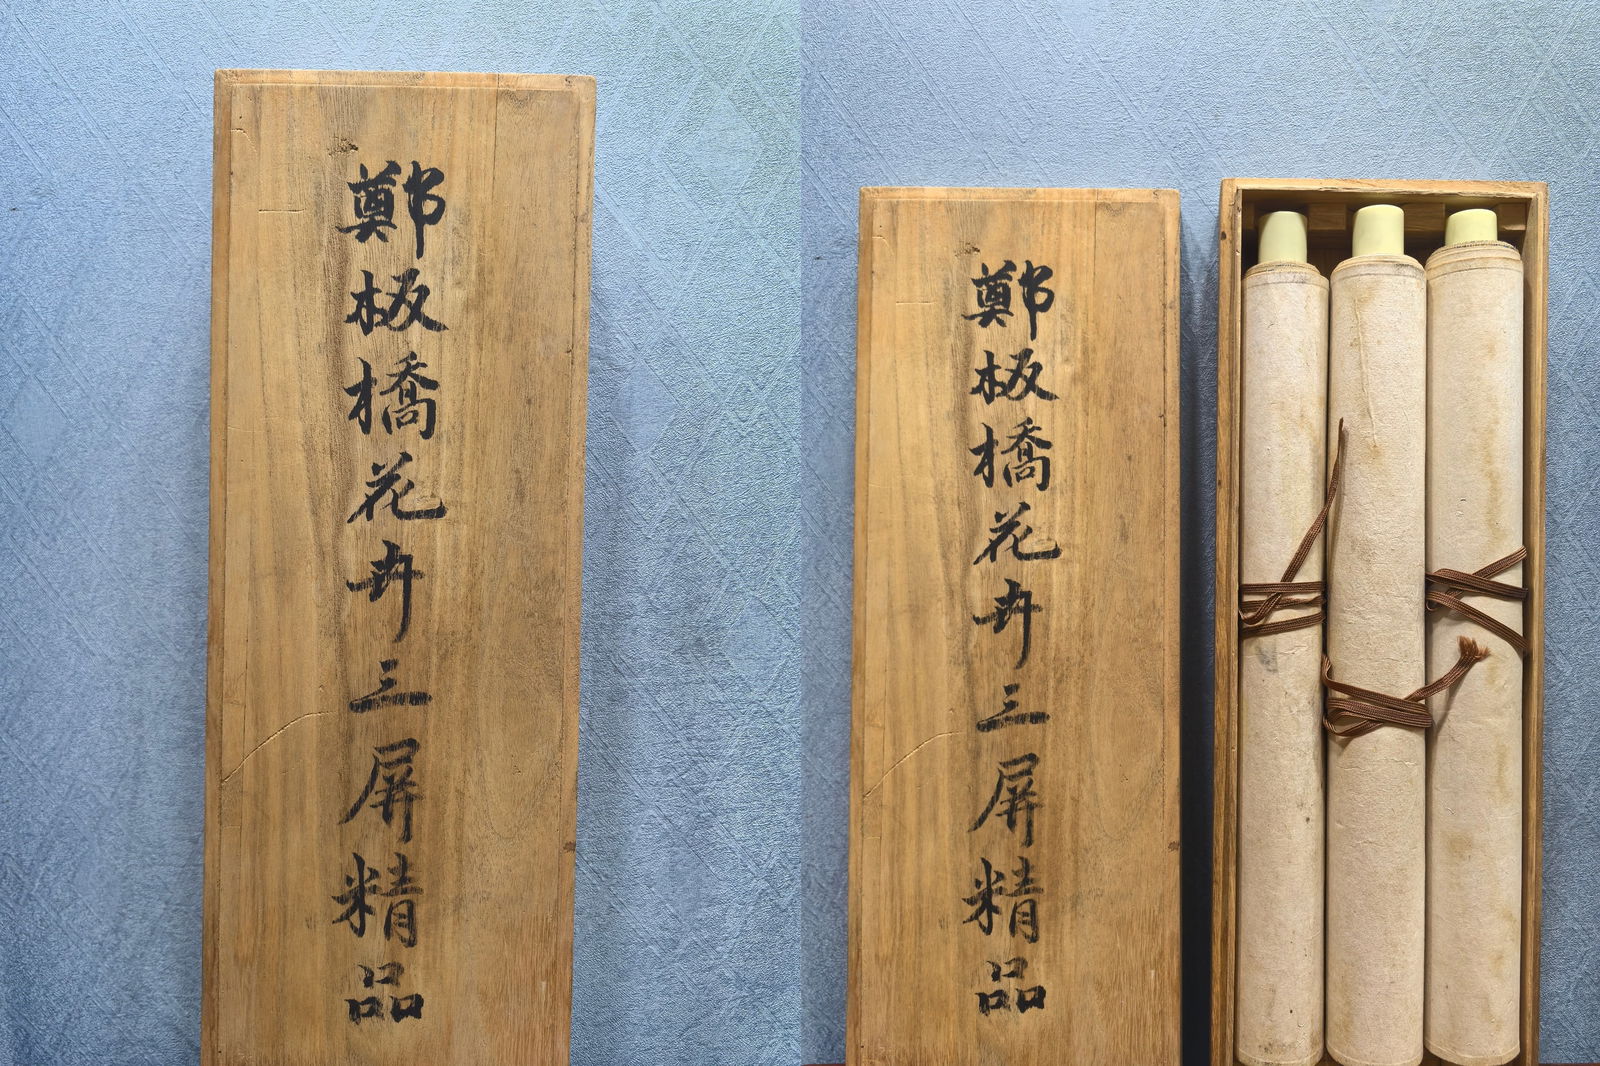 鄭板橋花卉三屏精品
鄭板橋花卉三屏精品